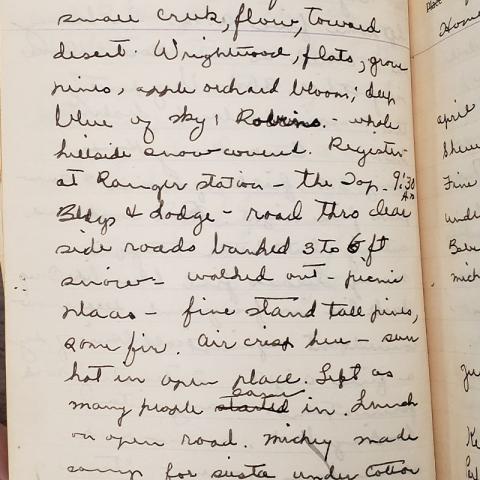 small creek, flow, toward
desert. Wrightwood, flats, grove
pines, apple orchard bloom; deep
blue of sky; Robins. - whole
hillside snow covered. Register
at Ranger station - the Top. 9:30 Am
Bldgs & Lodge - road thro clear
side roads banked 3 to 6 ft
snow - walked out - picnic
places - fine stand tall pines,
some fir. Air crisp here - sun
hot in open place. Left as
many people came in. Lunch
on open road. Mickey made
camp for siesta under cotton
Home
april
Fine
unde
mick